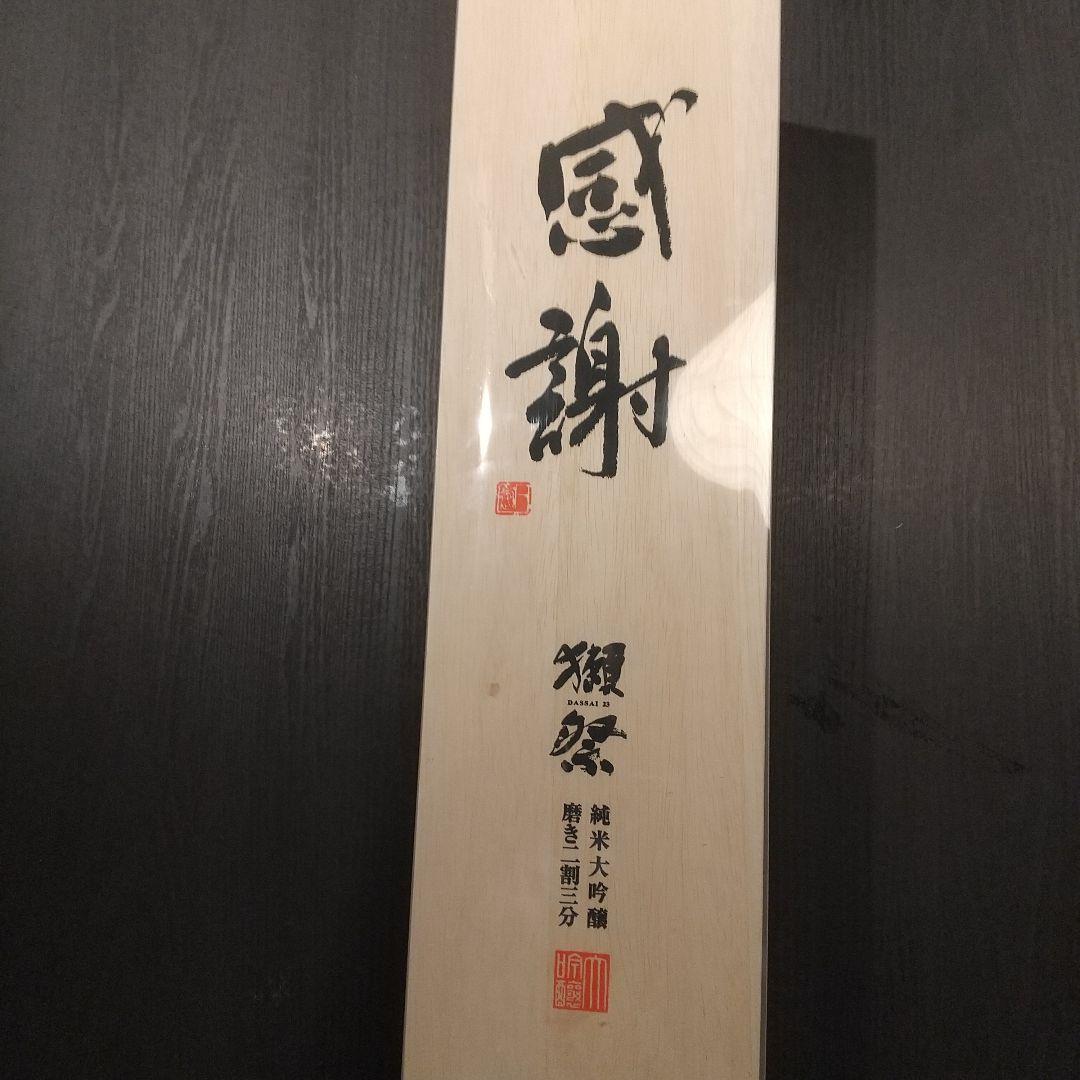 感謝
獺祭
DASSAI 23
純米大吟醸
磨き二割三分
大吟醸